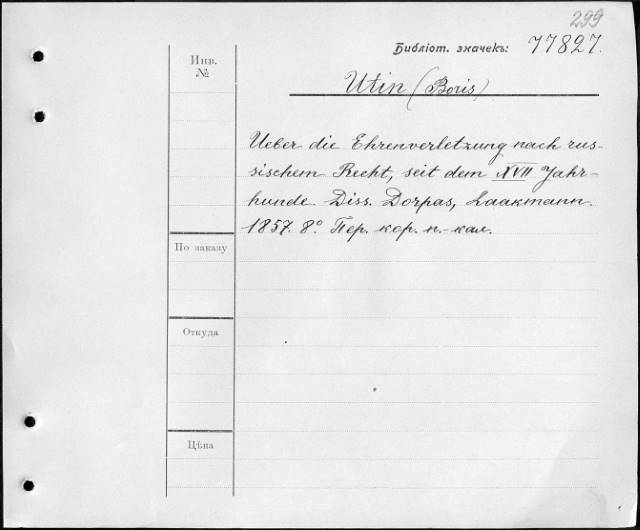 299
Библіот. значекъ: 77827.
Инв.
№
Utin (Boris)
Ueber die Ehrenverletzung nach rus-
sischem Recht, seit dem XVII Jahr-
hunde. Diss. Dorpas, Laakmann.
1857. 8º. Пер. кор. п.-кал.
По заказу
Откуда
Цѣна